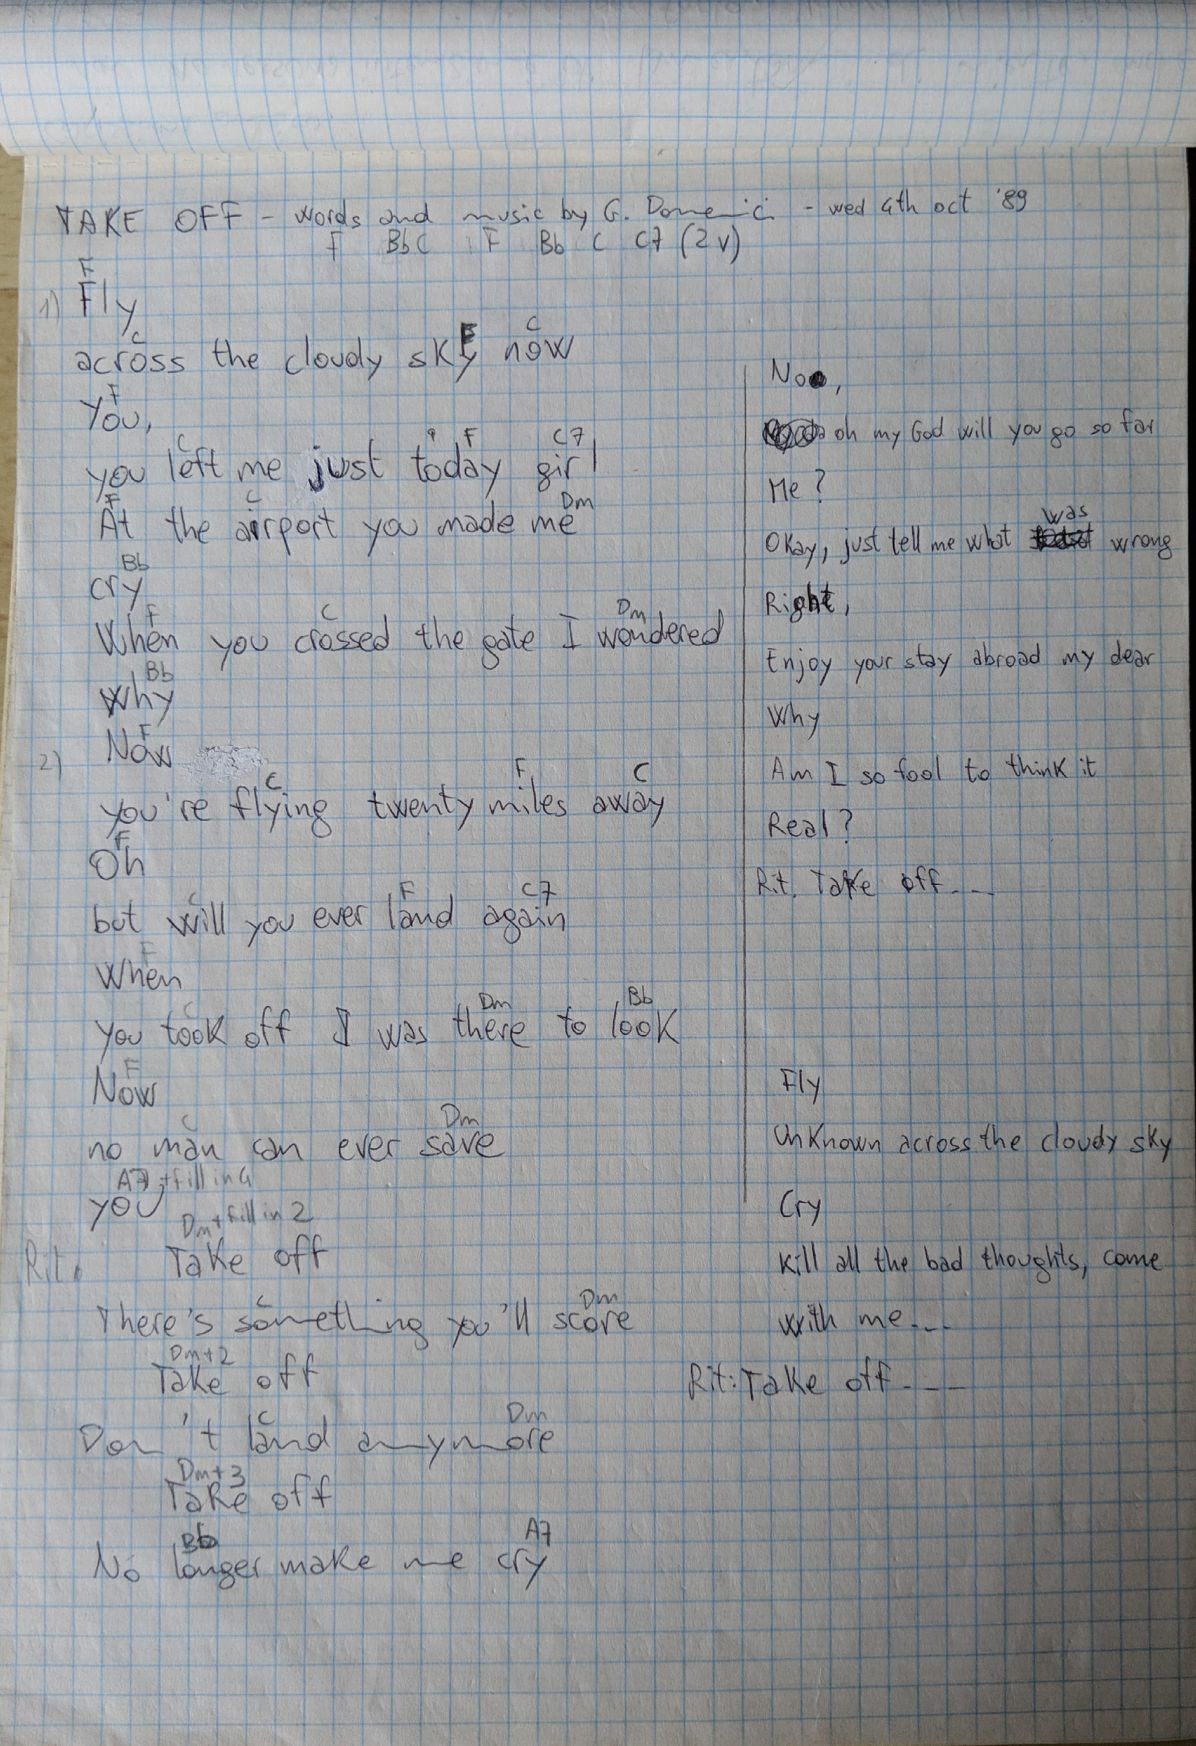 TAKE OFF - words and music by G. Domenici - wed 4th oct '89
F Bb C F Bb C C7 (2v)
F
1) Fly
C F C
across the cloudy sky now
F
You,
C F C7
you left me just today girl
F C Dm
At the airport you made me
Bb
cry
F C Dm
When you crossed the gate I wondered
Bb
Why
F
2) Now
C F C
you're flying twenty miles away
F
Oh
C F C7
but will you ever land again
F
When
C Dm Bb
you took off I was there to look
F
Now
C Dm
no man can ever save
A7 + fill in 4
you
Dm + fill in 2
Rit. Take off
C Dm
There's something you'll score
Dm+2
Take off
C Dm
Don't land anymore
Dm+3
Take off
Bb A7
No longer make me cry
No,
oh my God will you go so far
Me?
was
Okay, just tell me what wrong
Right,
Enjoy your stay abroad my dear
Why
Am I so fool to think it
Real?
Rit. Take off----
Fly
Unknown across the cloudy sky
Cry
Kill all the bad thoughts, come
with me---
Rit: Take off ----